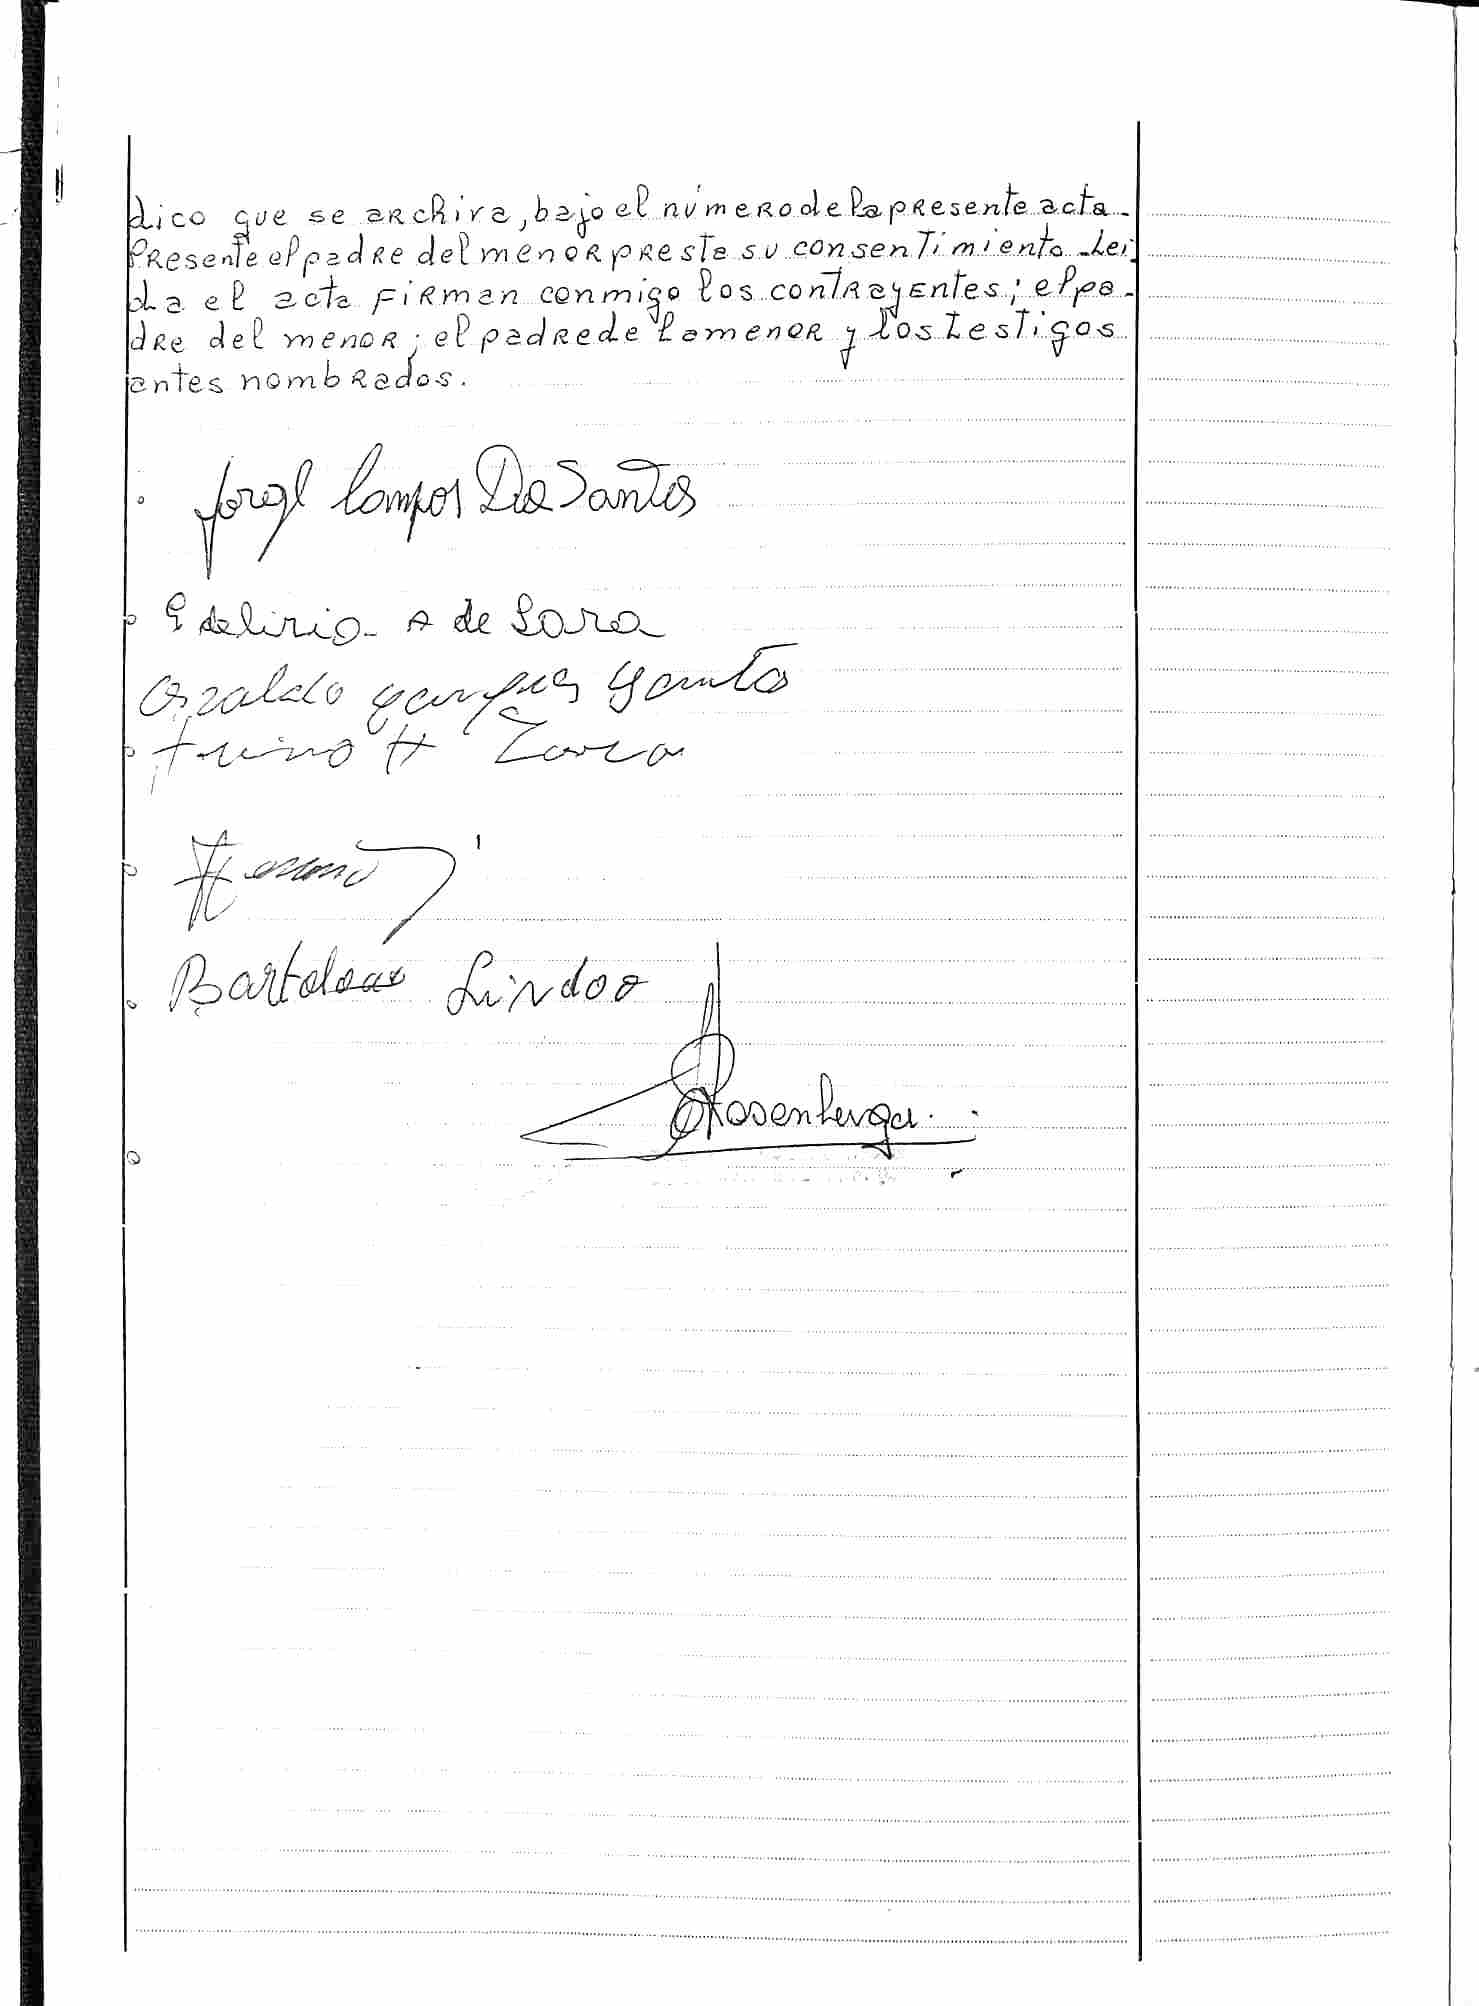 dico que se archiva, bajo el número de la presente acta.
Presente el padre del menor presta su consentimiento. Lei
da el acta firman conmigo los contrayentes; el pa-
dre del menor; el padre de la menor y los testigos
antes nombrados.
Jorge Campos Dos Santos
A de Lara
Osvaldo
H Lara
Bartolome Lindoo
Rosenberger